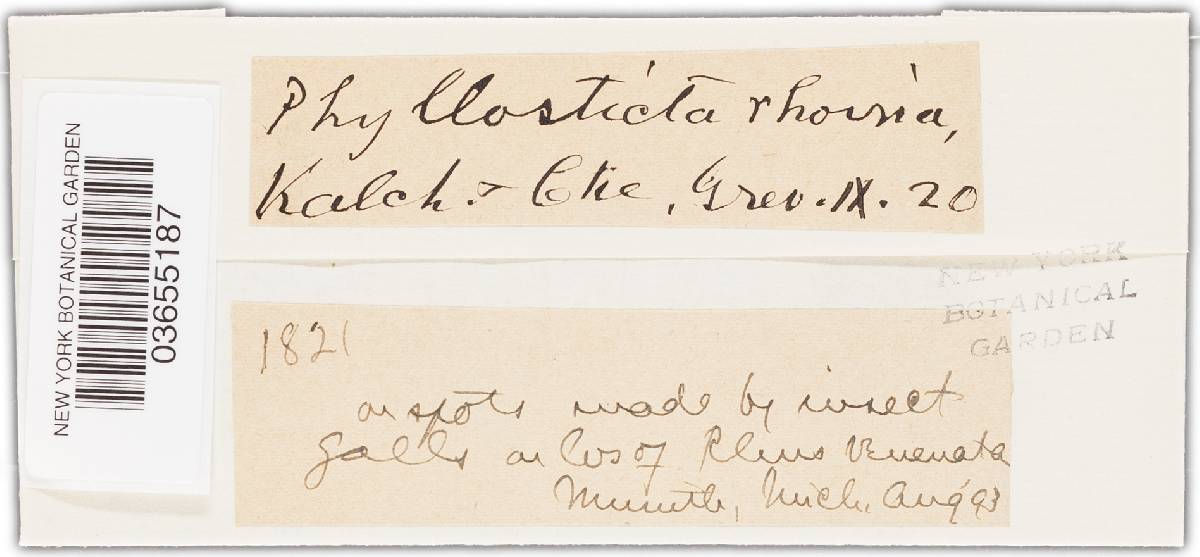 Phyllosticta rhoina,
Kalch. & Cke, Grev. IX. 20
NEW YORK BOTANICAL GARDEN
03655187
NEW YORK
BOTANICAL
GARDEN
1821
on spots made by insect
galls on lvs of Rhus venenata
Munith, Mich. Aug '93